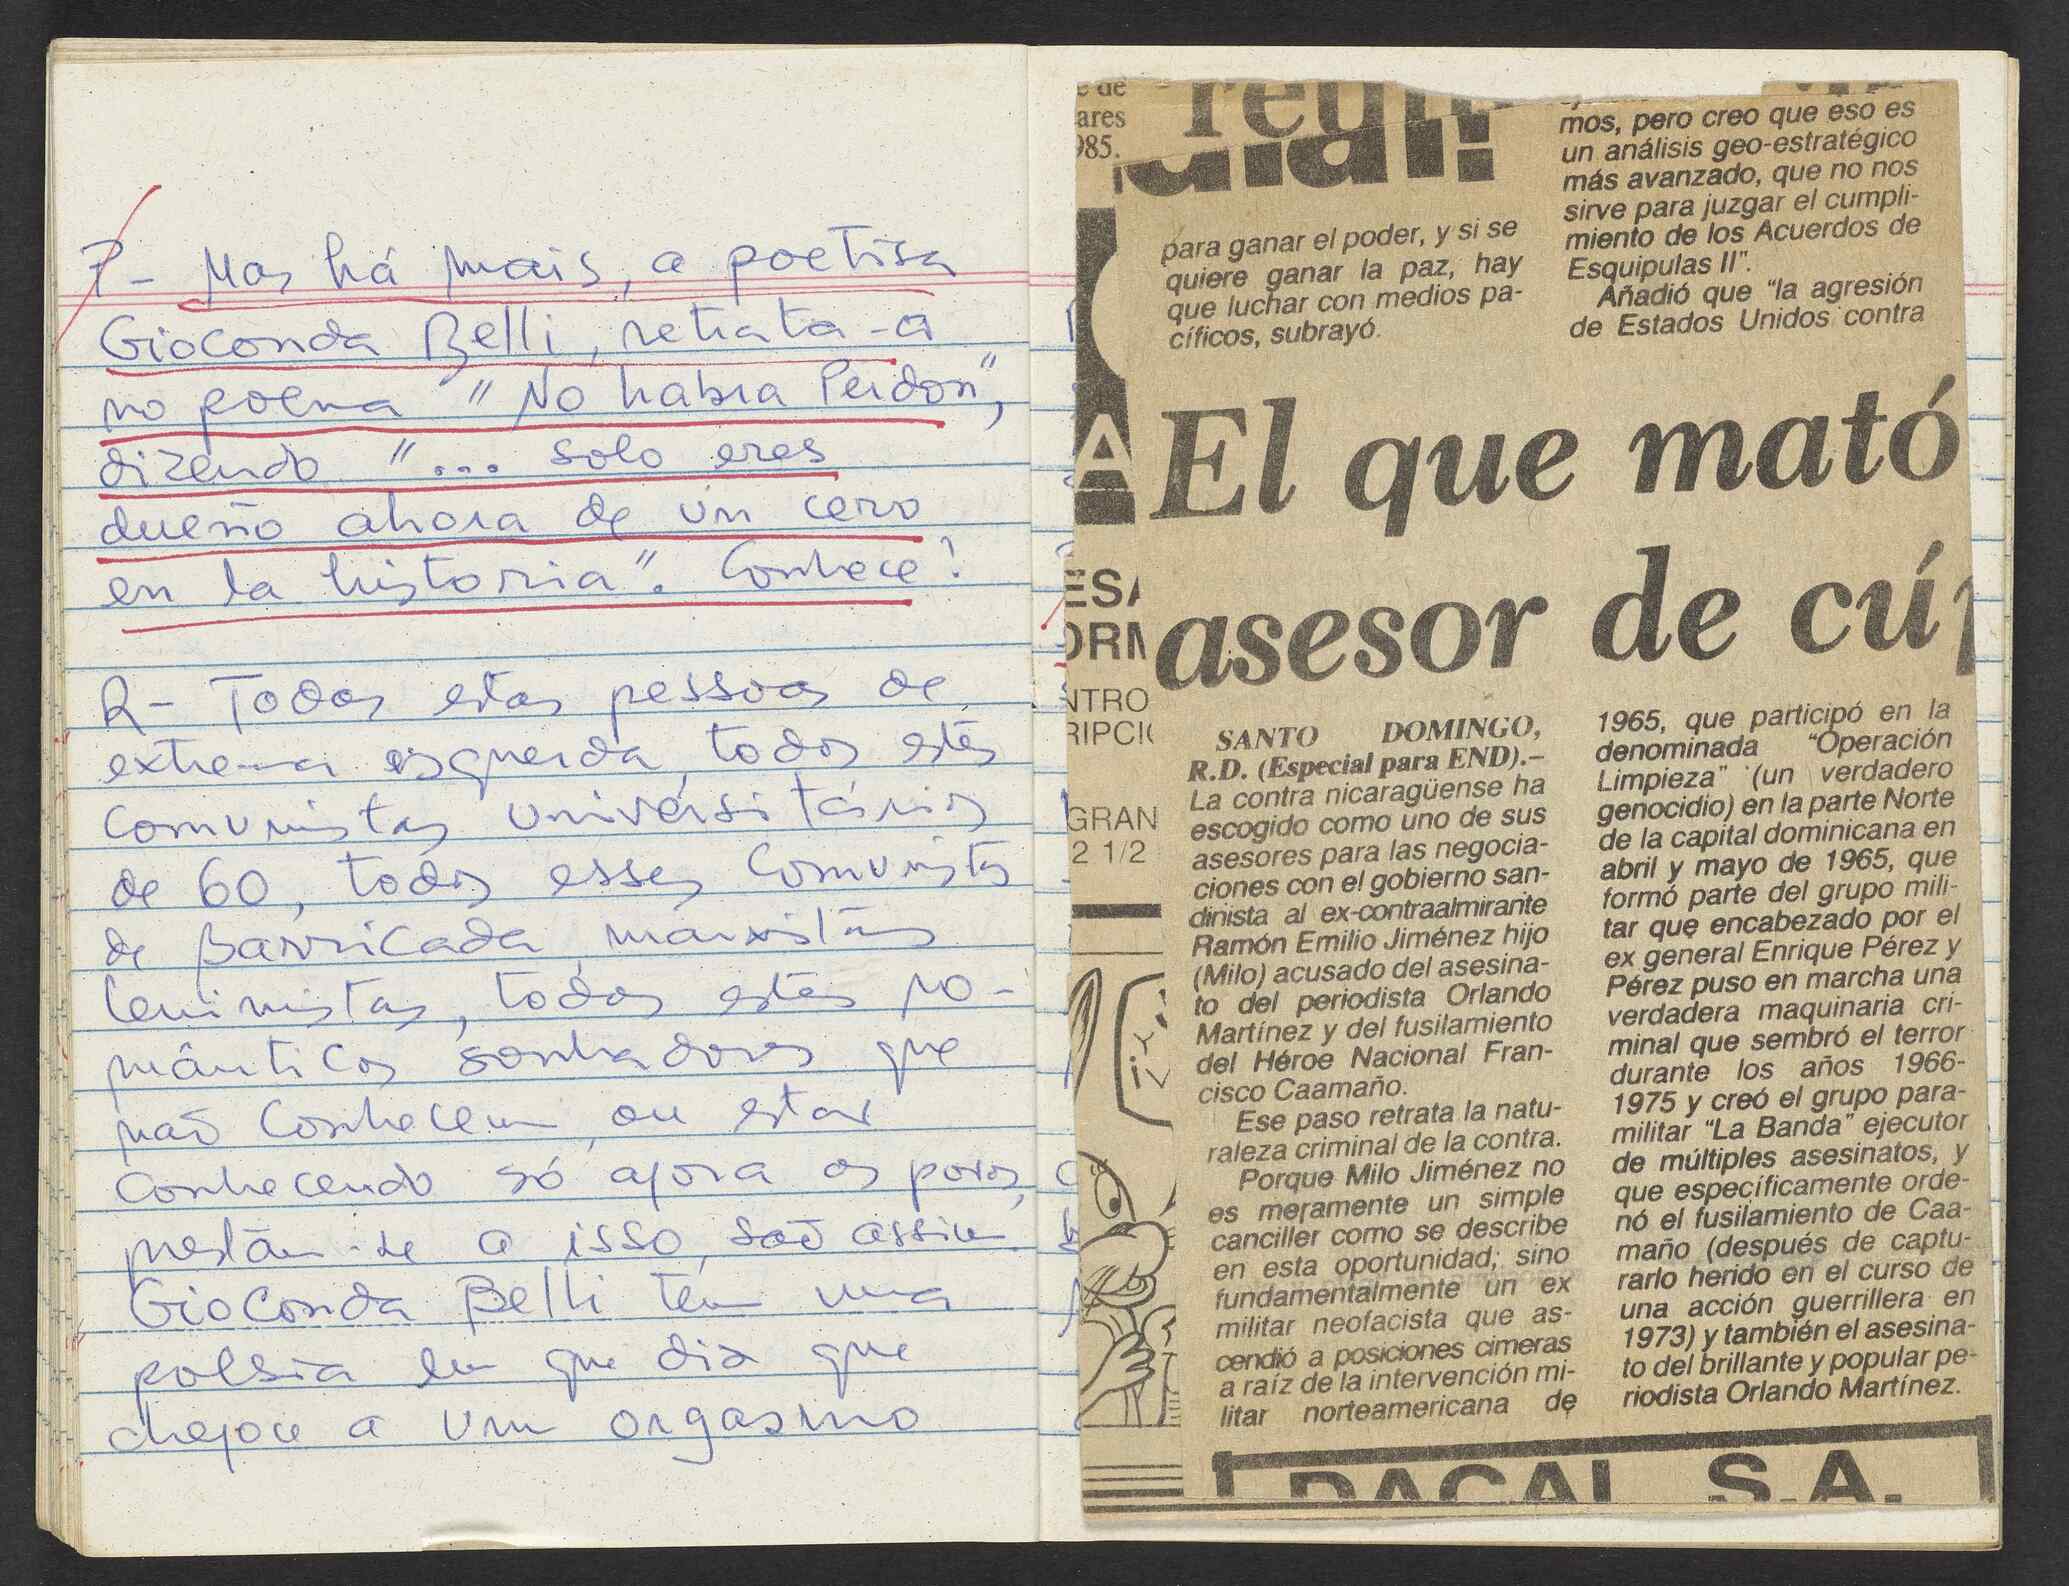 P- Mas há mais, a poetisa
Gioconda Belli, retrata-a
no poema "No habra Perdon",
dizendo "... solo eres
dueño ahora de un cero
en la historia". Conhece?
R- Todas estas pessoas de
extrema esquerda, todos estes
comunistas universitários
de 60, todos esses comunistas
de Barricada, marxistas
leninistas, todos estes ro-
mânticos sonhadores que
não conhecem, ou estar
conhecendo só agora os povos,
prestam-se a isso, são assim.
Gioconda Belli tem uma
poesia em que diz que
chegou a um orgasmo
e de
ares
985.
A
ESA
ORM
NTRO
RIPCI
GRAN
2 1/2
para ganar el poder, y si se
quiere ganar la paz, hay
que luchar con medios pa-
cíficos, subrayó.
mos, pero creo que eso es
un análisis geo-estratégico
más avanzado, que no nos
sirve para juzgar el cumpli-
miento de los Acuerdos de
Esquipulas II".
Añadió que "la agresión
de Estados Unidos contra
El que mató
asesor de cúp
SANTO DOMINGO,
R.D. (Especial para END).–
La contra nicaragüense ha
escogido como uno de sus
asesores para las negocia-
ciones con el gobierno san-
dinista al ex-contraalmirante
Ramón Emilio Jiménez hijo
(Milo) acusado del asesina-
to del periodista Orlando
Martínez y del fusilamiento
del Héroe Nacional Fran-
cisco Caamaño.
Ese paso retrata la natu-
raleza criminal de la contra.
Porque Milo Jiménez no
es meramente un simple
canciller como se describe
en esta oportunidad; sino
fundamentalmente un ex
militar neofacista que as-
cendió a posiciones cimeras
a raíz de la intervención mi-
litar norteamericana de
1965, que participó en la
denominada "Operación
Limpieza" (un verdadero
genocidio) en la parte Norte
de la capital dominicana en
abril y mayo de 1965, que
formó parte del grupo mili-
tar que encabezado por el
ex general Enrique Pérez y
Pérez puso en marcha una
verdadera maquinaria cri-
minal que sembró el terror
durante los años 1966-
1975 y creó el grupo para-
militar "La Banda" ejecutor
de múltiples asesinatos, y
que específicamente orde-
nó el fusilamiento de Caa-
maño (después de captu-
rarlo herido en el curso de
una acción guerrillera en
1973) y también el asesina-
to del brillante y popular pe-
riodista Orlando Martínez.
DACAL S.A.